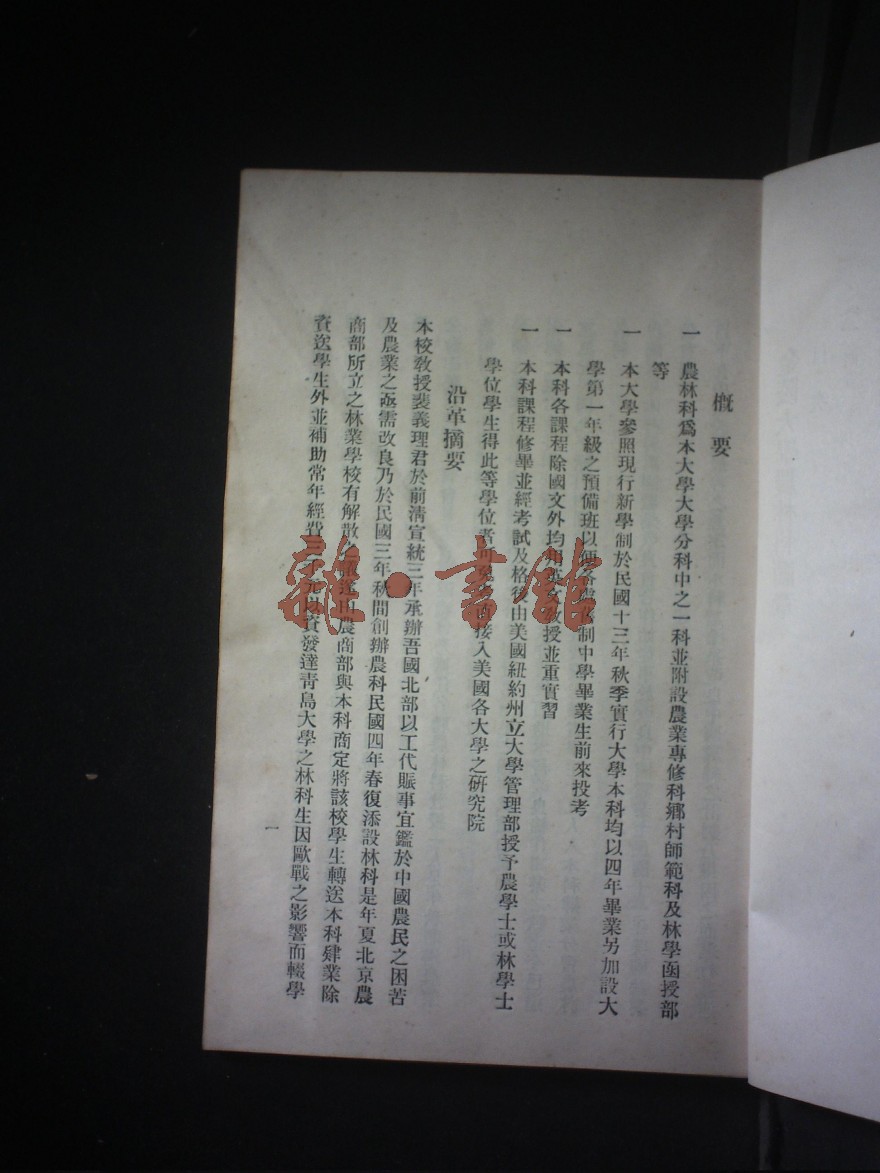 概要
一 農林科爲本大學大學分科中之一科並附設農業專修科鄉村師範科及林學函授部
等
一 本大學參照現行新學制於民國十三年秋季實行大學本科均以四年畢業另加設大
學第一年級之預備班以便各處舊制中學畢業生前來投考
一 本科各課程除國文外均用英文敎授並重實習
一 本科課程修畢並經考試及格後由美國紐約州立大學管理部授予農學士或林學士
學位學生得此等學位者可免 接入美國各大學之硏究院
沿革摘要
本校敎授裴義理君於前淸宣統三年承辦吾國北部以工代賑事宜鑑於中國農民之困苦
及農業之亟需改良乃於民國三年秋間創辦農科民國四年春復添設林科是年夏北京農
商部所立之林業學校有解散之 農商部與本科商定將該校學生轉送本科肄業除
資送學生外並補助常年經費 千元以資發達靑島大學之林科生因歐戰之影響而輟學
一
雜·書館